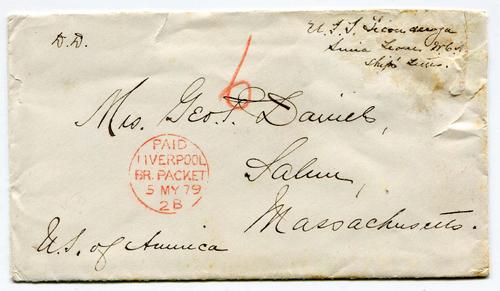 D.D.
U.S.S. Ticonderoga
Sierra Leone W.C.A
Ship's Letter.
6
Mrs. Geo. P. Daniels,
PAID
LIVERPOOL
BR. PACKET
5 MY 79
2B
Salem,
Massachusetts.
U.S. of America